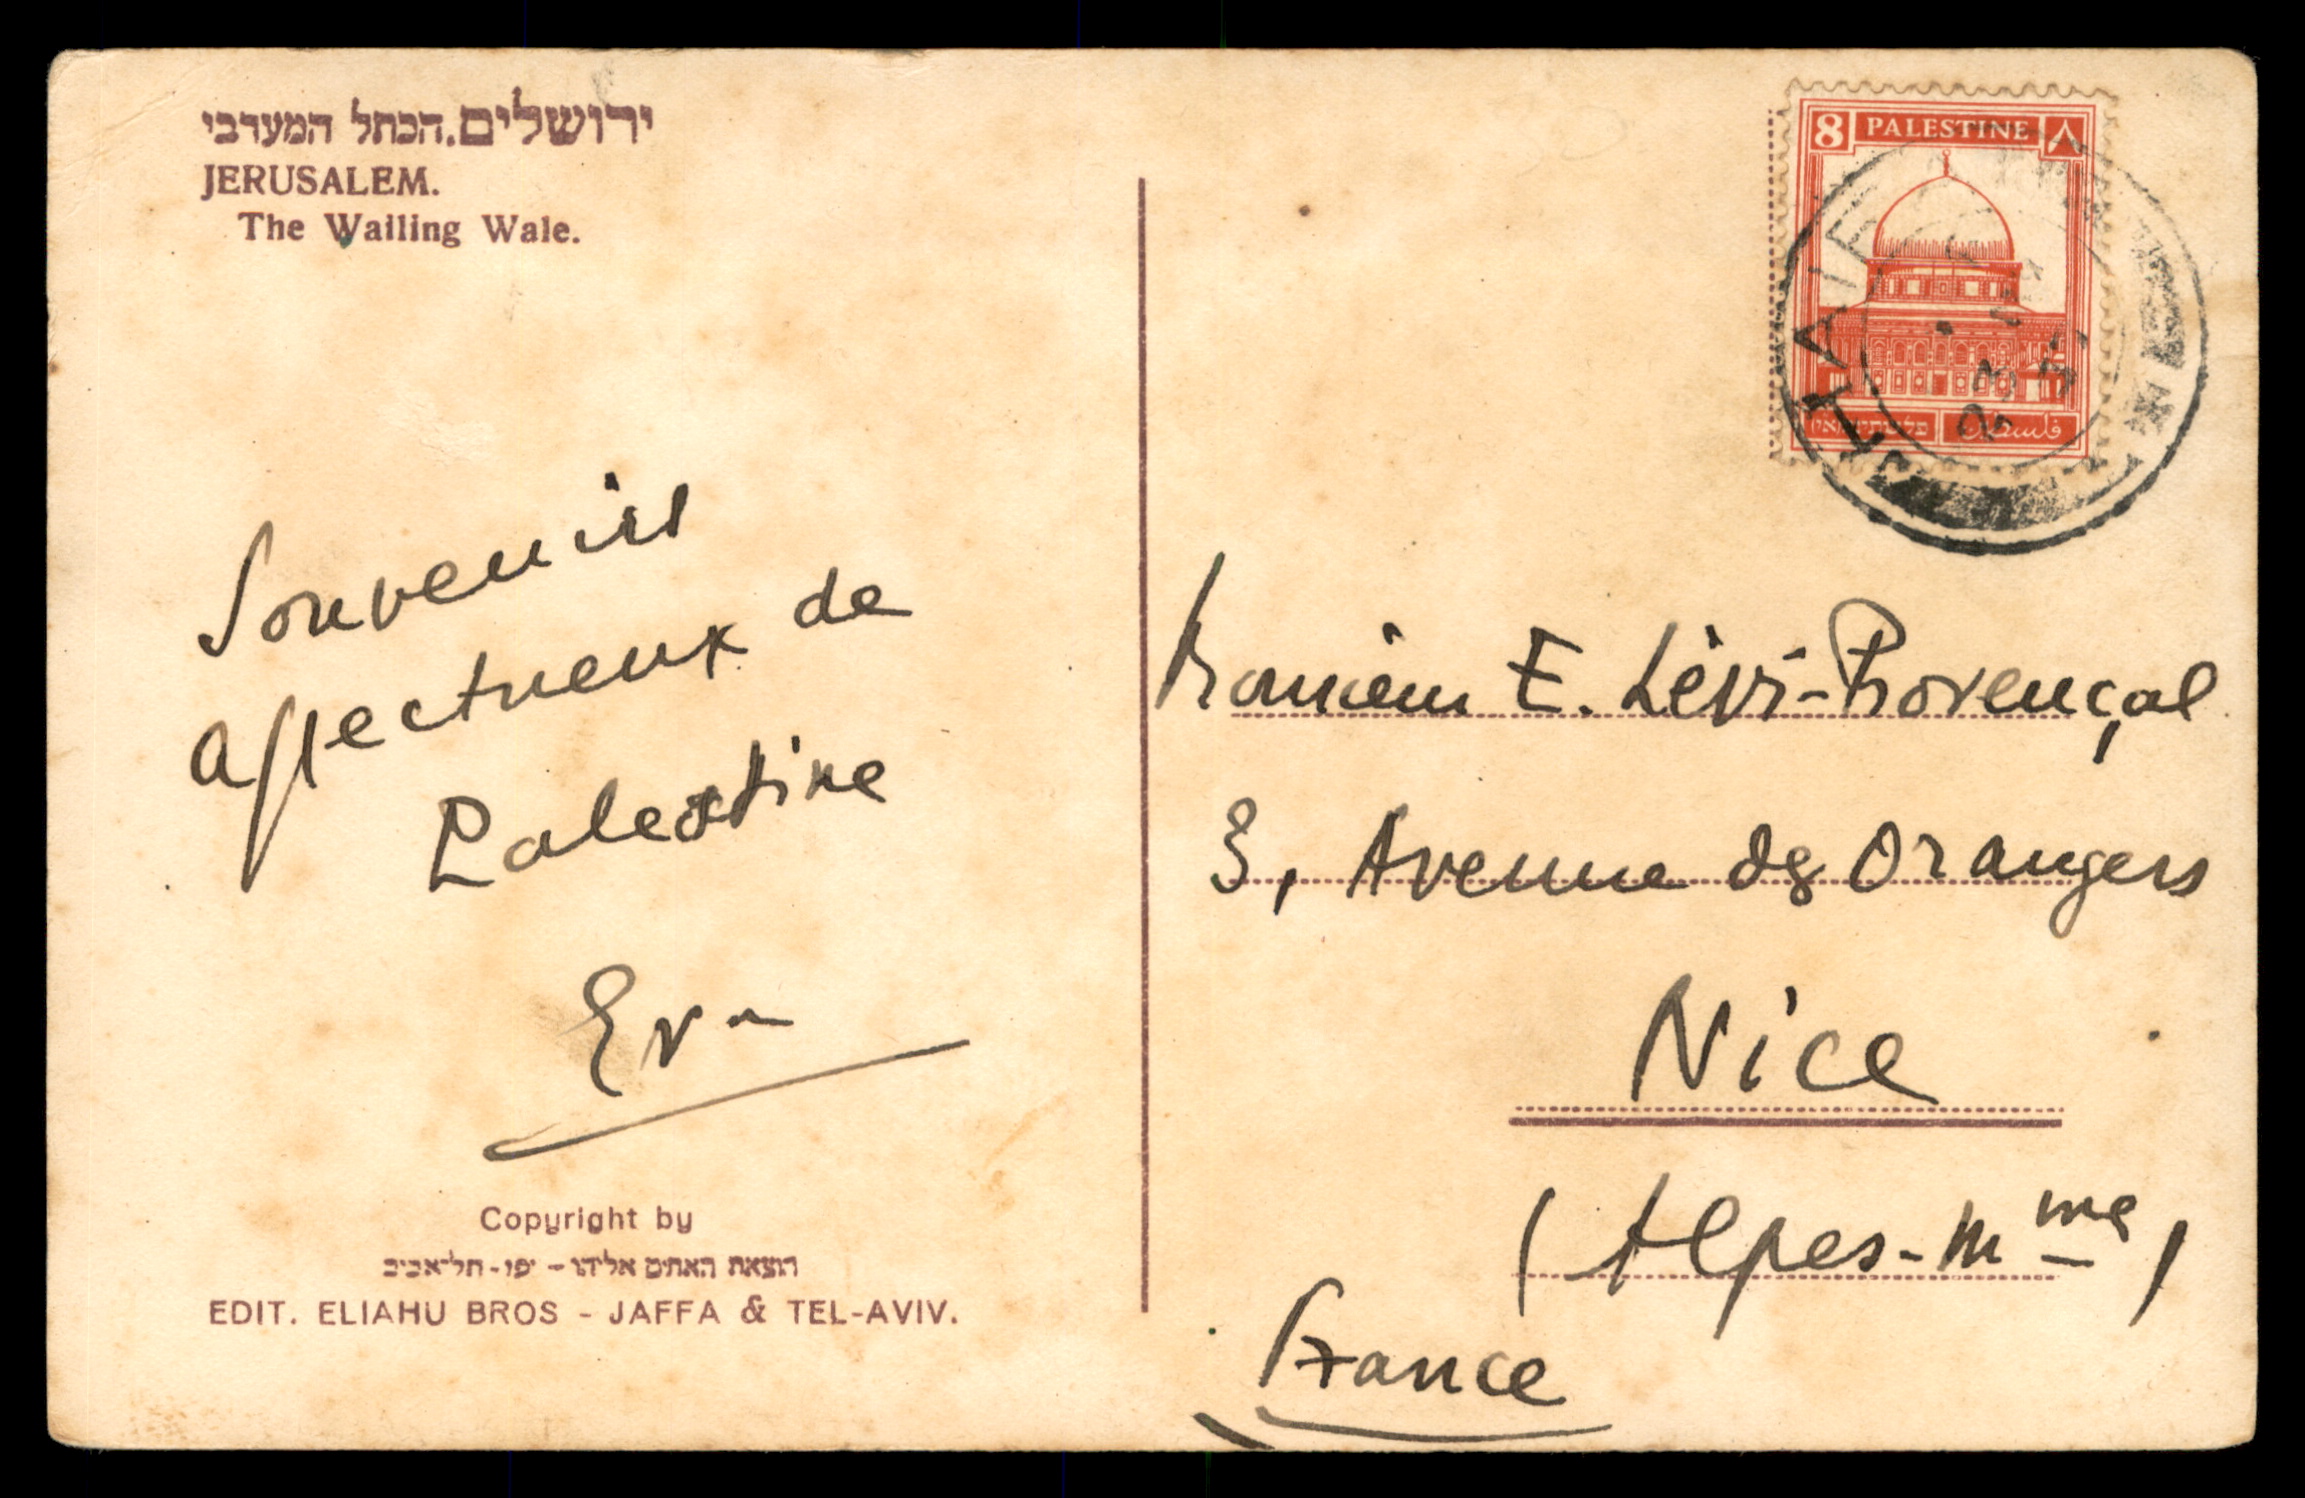 ירושלים. הכתל המערבי
JERUSALEM.
The Wailing Wale.
Souvenirs
affectueux de
Palestine
Copyright by
הוצאת האחים אליהו – יפו - תל־אביב
EDIT. ELIAHU BROS - JAFFA & TEL-AVIV.
8 PALESTINE ٨
فلسطين
HAIFA
Monsieur E. Lévi-Provençal
3, Avenue des Orangers
Nice
(Alpes-Mmes)
France